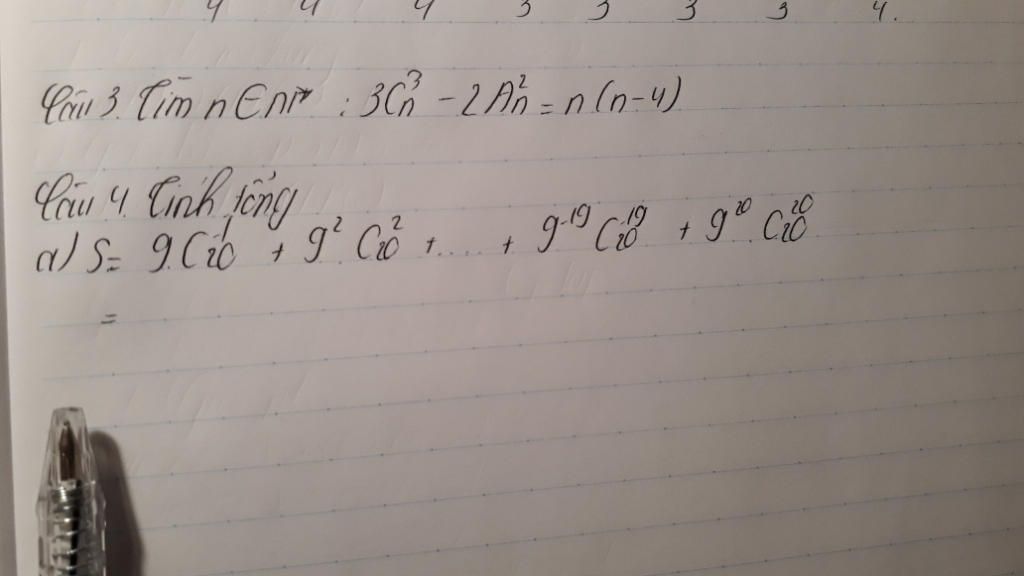 4 4 4 3 3 3 3 4.
Câu 3. Tìm n ∈ N* : 3Cₙ³ - 2Aₙ² = n(n-4)
Câu 4. Tính tổng
a) S = 9.C₂₀¹ + 9² C₂₀² + .... + 9¹⁹ C₂₀¹⁹ + 9²⁰ C₂₀²⁰
=